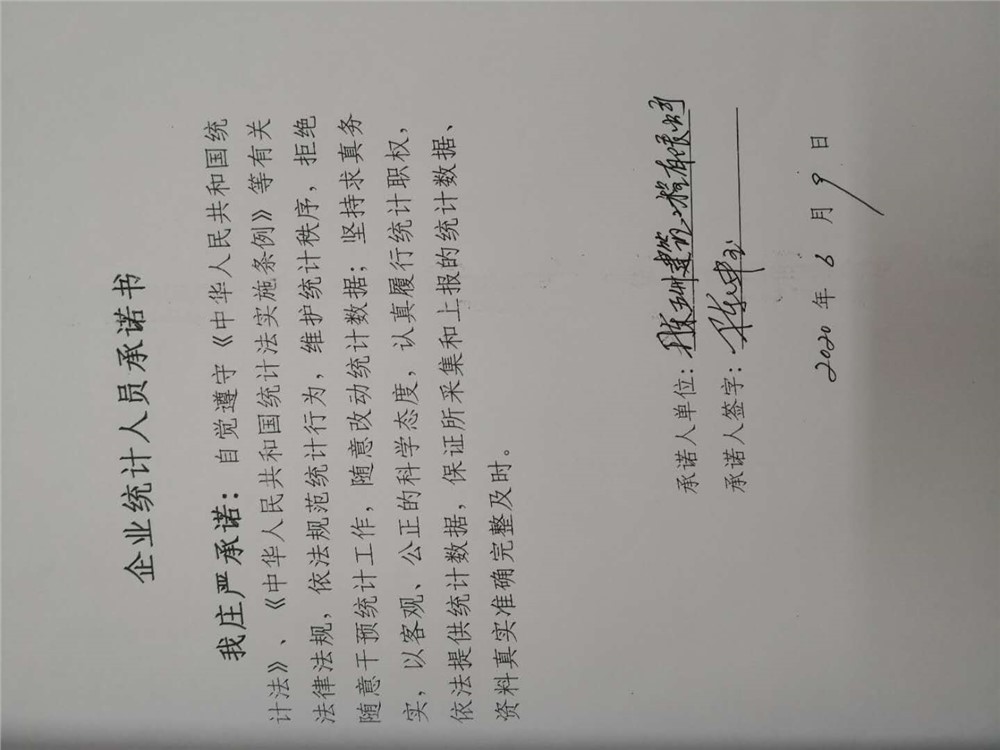 企业统计人员承诺书
我庄严承诺：自觉遵守《中华人民共和国统
计法》、《中华人民共和国统计法实施条例》等有关
法律法规，依法规范统计行为，维护统计秩序，拒绝
随意干预统计工作，随意改动统计数据；坚持求真务
实，以客观、公正的科学态度，认真履行统计职权，
依法提供统计数据，保证所采集和上报的统计数据、
资料真实准确完整及时。
承诺人单位：建筑工程有限公司
承诺人签字：
2020年6月9日